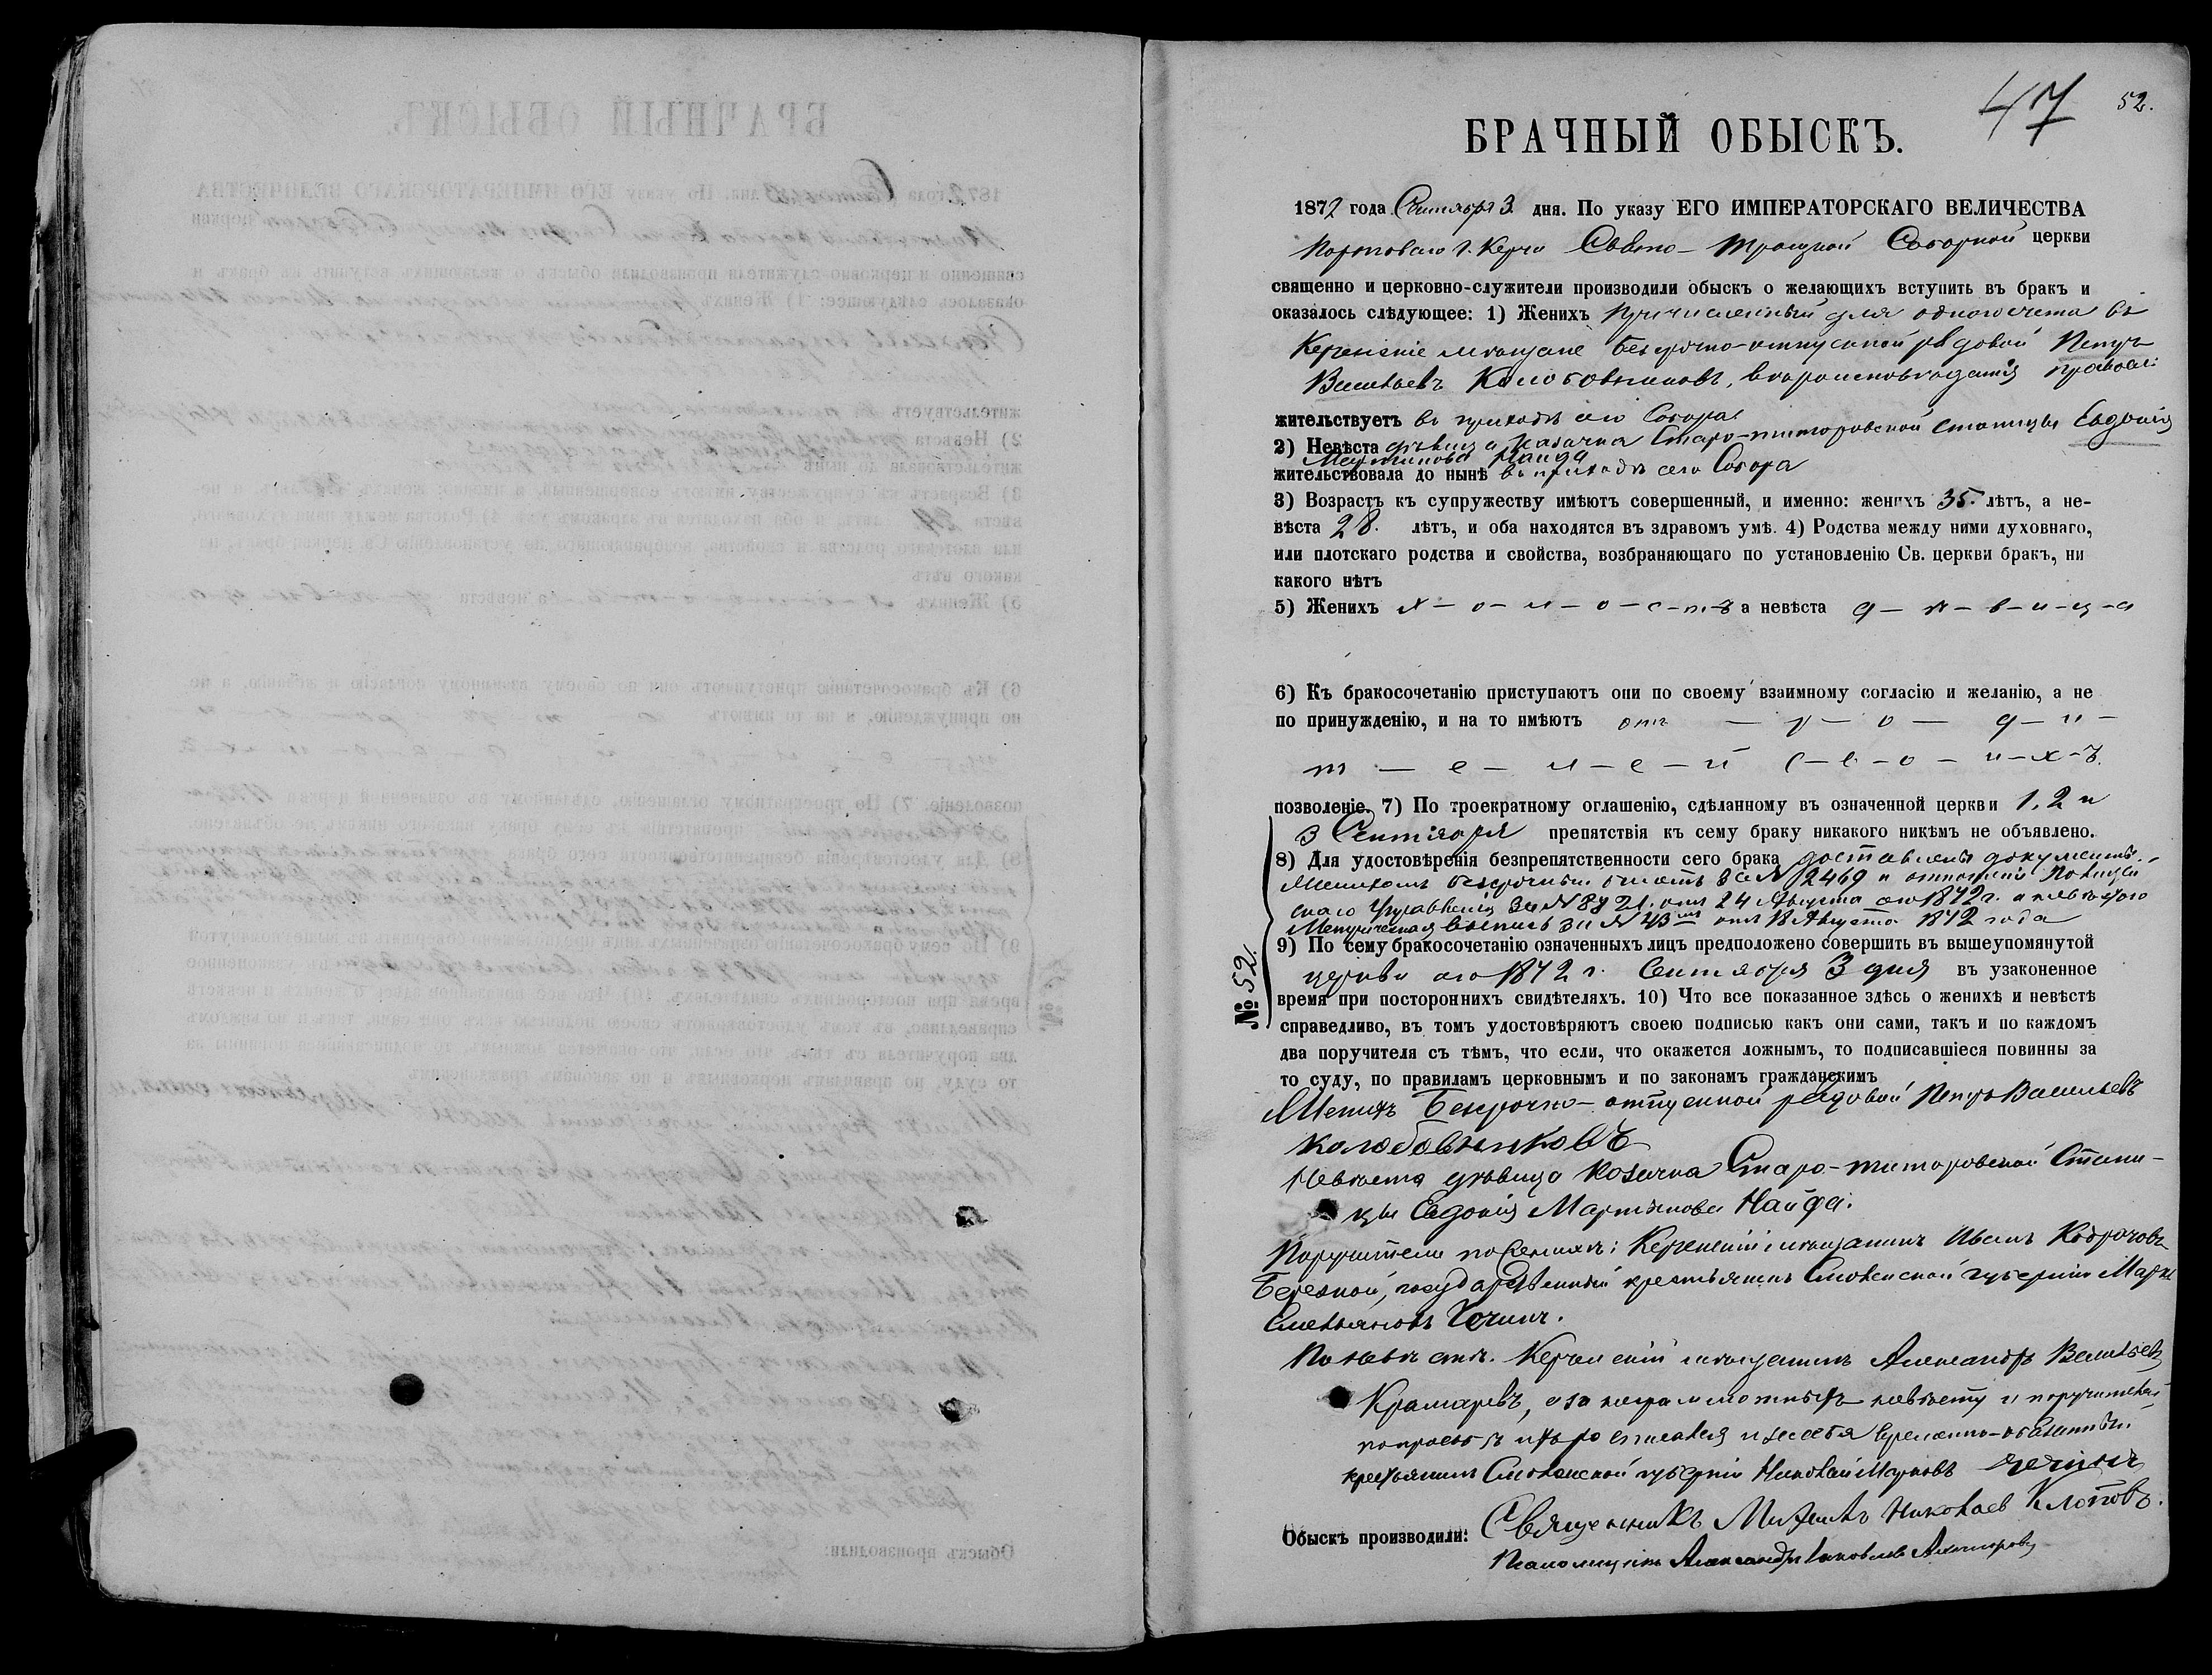 47 52.
БРАЧНЫЙ ОБЫСКЪ.
1872 года Сентября 3 дня. По указу ЕГО ИМПЕРАТОРСКАГО ВЕЛИЧЕСТВА
Портоваго г. Керчи Свято-Троицкой Соборной церкви
священно и церковно-служители производили обыскъ о желающихъ вступить въ бракъ и
оказалось слѣдующее: 1) Женихъ Причисленный для одного счета въ
Керченскіе мѣщане безсрочно-отпускной рядовой Петръ
Васильевъ Колобовниковъ, вѣроисповѣданія правосл:
жительствуетъ въ приходѣ сего Собора
2) Невѣста дѣвица казачка Старо-титоровской станицы Евдокія
Мартинова Найда
жительствовала до нынѣ въ приходѣ сего Собора
3) Возрастъ къ супружеству имѣютъ совершенный, и именно: женихъ 35. лѣтъ, а не-
вѣста 28. лѣтъ, и оба находятся въ здравомъ умѣ. 4) Родства между ними духовнаго,
или плотскаго родства и свойства, возбраняющаго по установленію Св. церкви бракъ, ни
какого нѣтъ
5) Женихъ х-о-л-о-с-т-ъ а невѣста д-ѣ-в-и-ц-а
6) Къ бракосочетанію приступаютъ они по своему взаимному согласію и желанію, а не
по принужденію, и на то имѣютъ отъ - р - о - д - и -
т - е - л - е - й с - в - о - и - х - ъ.
позволеніе. 7) По троекратному оглашенію, сдѣланному въ означенной церкви 1, 2 и
3 Сентября препятствія къ сему браку никакого никѣмъ не объявлено.
8) Для удостовѣренія безпрепятственности сего брака доставлены документы.
Женихомъ безсрочный билетъ за № 2469 и отношеніе Полицей
скаго Управленія за № 8821. отъ 24 Августа сего 1872 г. а невѣстою
Метрическая выпись за № 43 отъ 18 Августа 1872 года
9) По сему бракосочетанію означенныхъ лицъ предположено совершить въ вышеупомянутой
церкви сего 1872 г. Сентября 3 дня въ узаконенное
№ 52.
время при постороннихъ свидѣтеляхъ. 10) Что все показанное здѣсь о женихѣ и невѣстѣ
справедливо, въ томъ удостовѣряютъ своею подписью какъ они сами, такъ и по каждомъ
два поручителя съ тѣмъ, что если, что окажется ложнымъ, то подписавшіеся повинны за
то суду, по правиламъ церковнымъ и по законамъ гражданскимъ
Женихъ Безсрочно-отпускной рядовой Петръ Васильевъ
Колобовниковъ
Невѣста дѣвица Козачка Старо-титоровской Стани-
цы Евдокія Мартинова Найда.
Поручители по женихѣ: Керченскій мѣщанинъ Иванъ
Березной, государственный крестьянинъ Смоленской губерніи Маркъ
По невѣстѣ. Керченскій мѣщанинъ Александръ Васильевъ
Крамаревъ, а за неграмотныхъ невѣсту и поручителей
по просьбѣ ихъ росписался и за себя временно-обязанный
крестьянинъ Смоленской губерніи Николай Марковъ
Обыскъ производили: Священникъ Михаилъ Николаев Клоповъ.
Псаломщикъ Александръ Яковлевъ